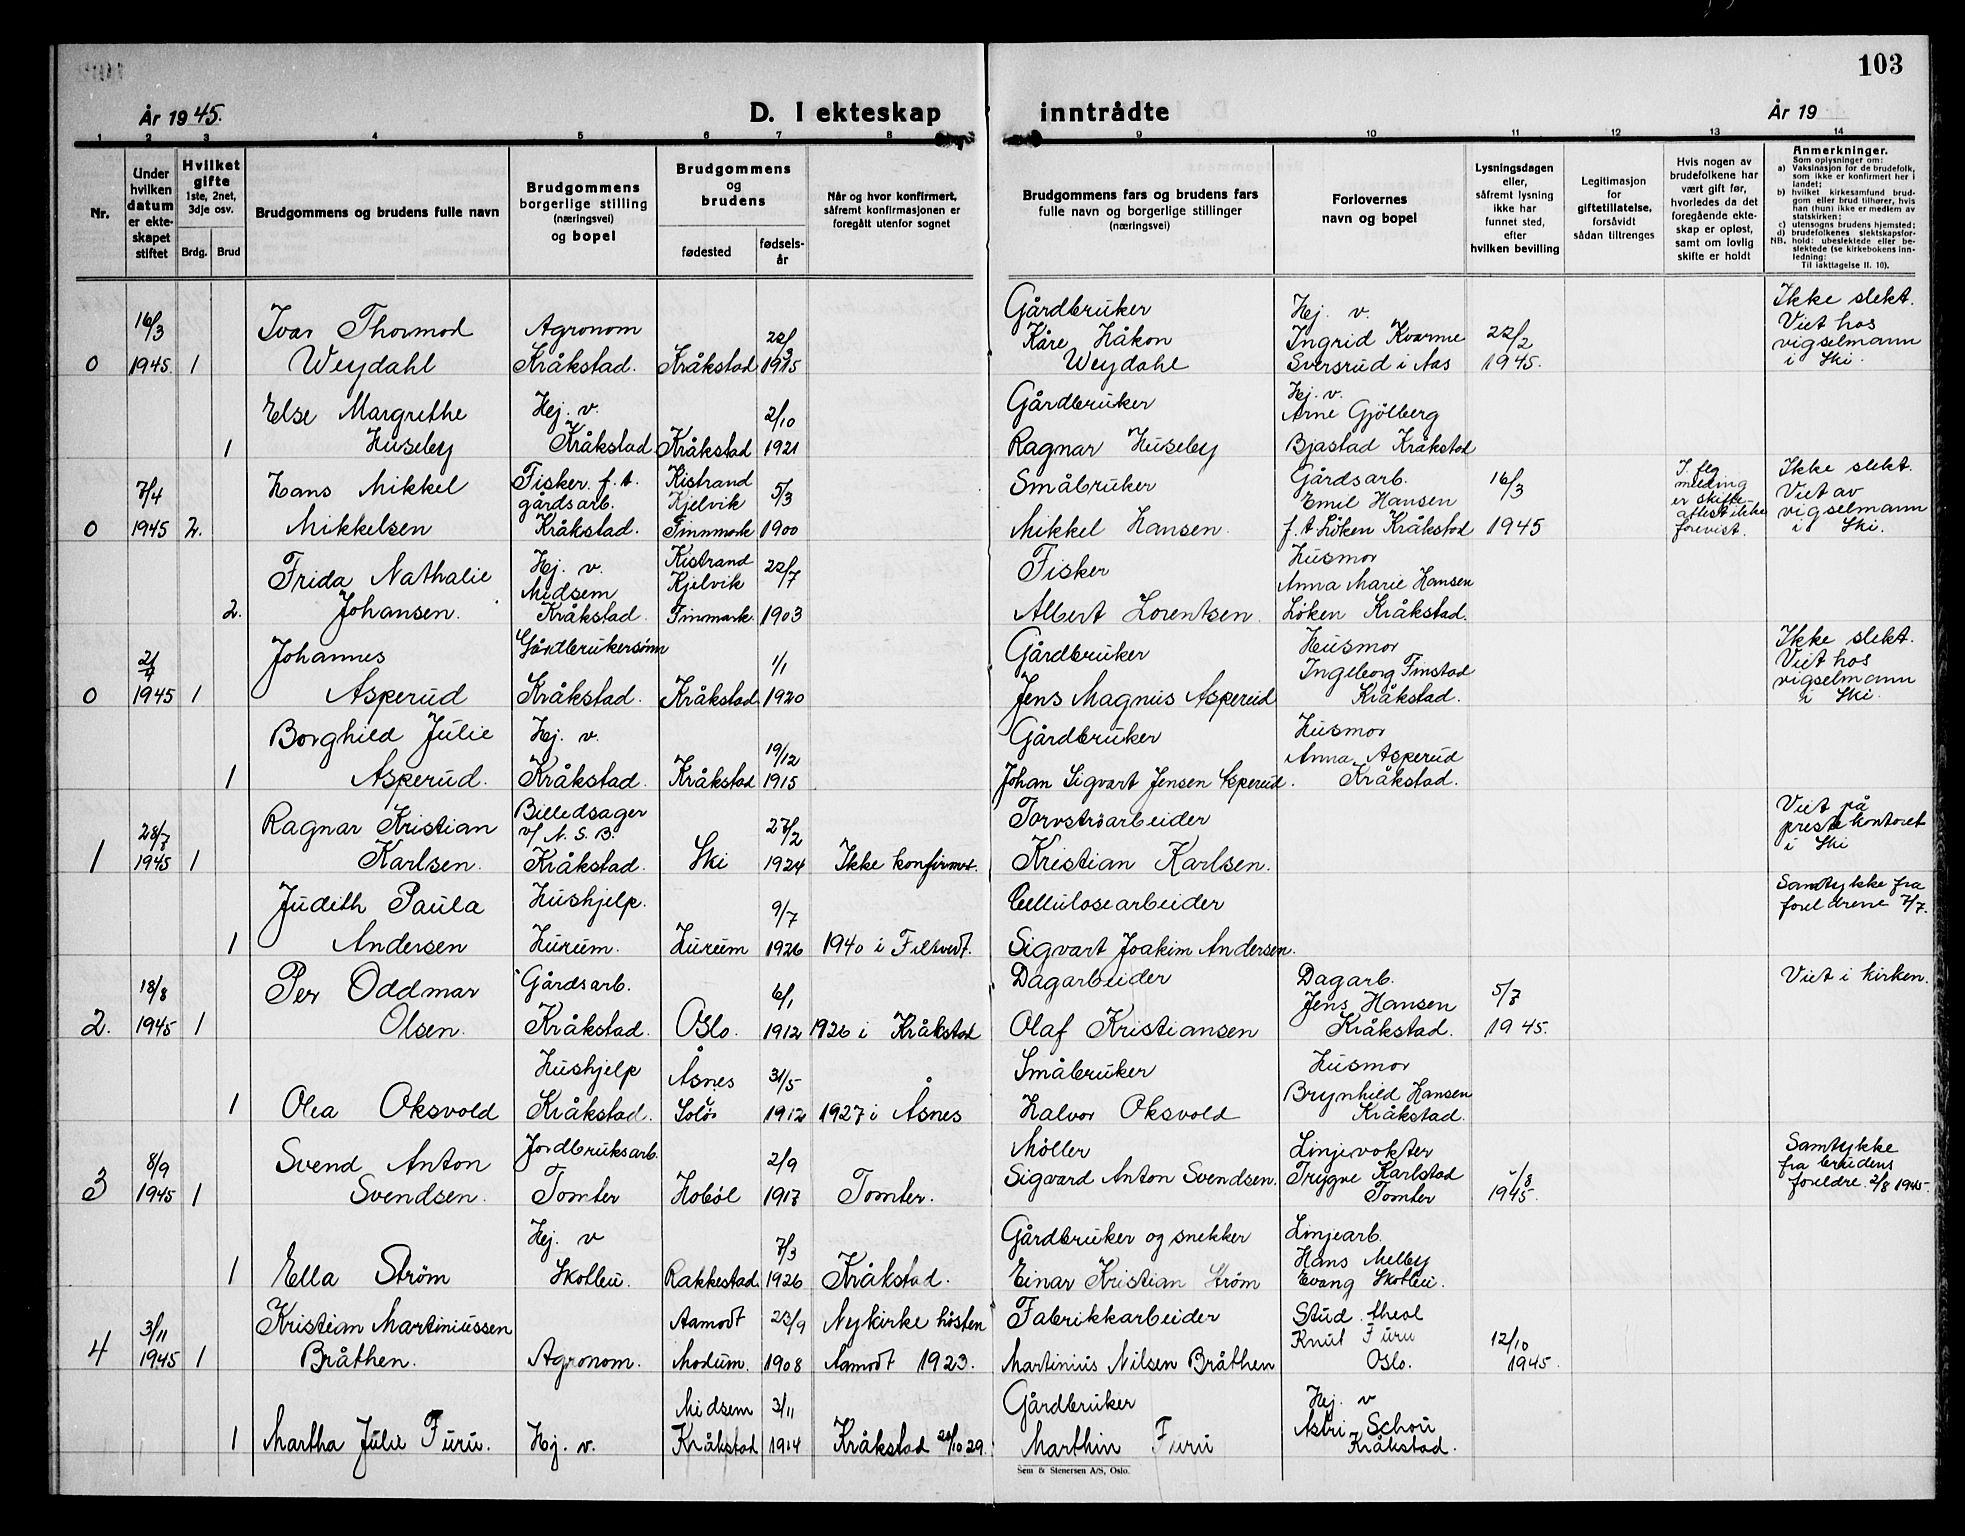 103
År 1945.
D. I ekteskap inntrådte
År 19
1 2 3 4 5 6 7 8 9 10 11 12 13 14
Nr.
Under hvilken datum er ekteskapet stiftet
Hvilket gifte 1ste, 2net, 3dje osv.
Brdg. Brud
Brudgommens og brudens fulle navn
Brudgommens borgerlige stilling (næringsvei) og bopel
Brudgommens og brudens
fødested
fødselsår
Når og hvor konfirmert, såfremt konfirmasjonen er foregått utenfor sognet
Brudgommens fars og brudens fars fulle navn og borgerlige stillinger (næringsvei)
Forlovernes navn og bopel
Lysningsdagen eller, såfremt lysning ikke har funnet sted, efter hvilken bevilling
Legitimasjon for giftetillatelse, forsåvidt sådan tiltrenges
Hvis nogen av brudefolkene har vært gift før, hvorledes da det foregående ekteskap er opløst, samt om lovlig skifte er holdt
Anmerkninger.
Som oplysninger om:
a) Vaksinasjon for de brudefolk, som ikke er konfirmert her i landet;
b) hvilket kirkesamfund brudgom eller brud tilhører, hvis han (hun) ikke er medlem av statskirken;
c) utensogns brudens hjemsted;
d) brudefolkenes slektskapsforhold: ubeslektede eller beslektede (se kirkebokens innledning:
NB. Til iakttagelse II. 10).
0 16/3 1945. 1 Ivar Thormod Weydahl Agronom Kråkstad. Kråkstad 22/3 1915 Gårdbruker Kåre Håkon Weydahl Hej. v. Ingrid Kvarme Sversrud i Aas 22/2 1945. Ikke slekt. Viet hos vigselmann i Ski.
1 Else Margrethe Huseby Hej. v. Kråkstad Kråkstad 2/10 1921 Gårdbruker Ragnar Huseby Hej. v. Arne Gjölberg Bjastad Kråkstad
0 7/4 1945 2. Hans Mikkel Mikkelsen Fisker f.t. gårdsarb. Kråkstad. Kistrand Kjelvik Finnmark 5/3 1900 Småbruker Mikkel Hansen. Gårdsarb. Emil Hansen f.t. Löken Kråkstad 16/3 1945 I flg melding er skifteattest ikke forevist. Ikke slekt. Viet av vigselmann i Ski.
2. Frida Nathalie Johansen. Hej. v. Midsem Kråkstad. Kistrand Kjelvik Finmark. 22/7 1903 Fisker Albert Lorentsen. Husmor Anna Marie Hansen Löken Kråkstad.
0 2/4 1945 1 Johannes Asperud Gårdbrukersönn Kråkstad. Kråkstad 1/1 1920 Gårdbruker Jens Magnus Asperud Husmor Ingeborg Finstad Kråkstad. Ikke slekt. Viet hos vigselmann i Ski.
1 Borghild Julie Asperud. Hej. v. Kråkstad. Kråkstad 19/12 1915 Gårdbruker Johan Sigvart Jensen Asperud. Husmor Anna Asperud Kråkstad.
1 28/7 1945 1 Ragnar Kristian Karlsen. Billedsager v/ N.S.B. Kråkstad. Ski 27/2 1924 Ikke konfirmert. Torvströarbeider Kristian Karlsen. Viet på prestekontoret i Ski
1 Judith Paula Andersen Hushjelp. Hurum. Hurum 9/7 1926 1940 i Filtvedt. Cellulosearbeider Sigvart Joakim Andersen. Samtykke fra foreldrene 7/7.
2. 18/8 1945 1 Per Oddmar Olsen. Gårdsarb. Kråkstad. Oslo. 6/1 1912 1926 i Kråkstad Dagarbeider Olaf Kristiansen Dagarb. Jens Hansen Kråkstad. 5/7 1945. Viet i kirken.
1 Olea Oksvold Hushjelp Kråkstad. Åsnes Solör 31/5 1912 1927 i Åsnes Småbruker Halvor Oksvold Husmor Brynhild Hansen Kråkstad.
3 8/9 1945 1 Svend Anton Svendsen. Jordbruksarb. Tomter Hobøl 2/9 1917 Tomter. Møller Sigvard Anton Svendsen. Linjevokter Trygve Karlstad Tomter 1945. Samtykke fra brudens foreldre. 2/8 1945.
1 Ella Strøm Hej. v Skotbu. Rakkestad. 7/3 1926 Kråkstad. Gårdbruker og snekker Einar Kristian Strøm Linjearb. Hans Melby Evang Skotbu.
4 3/11 1945 1 Kristian Martiniussen Bråthen. Agronom. Aamodt Modum. 23/9 1908 Nykirke høsten Aamodt 1923. Fabrikkarbeider Martinius Nilsen Bråthen Stud. theol Knut Furu Oslo. 12/10 1945.
1 Martha Julie Furu. Hej. v. Midsem Kråkstad 3/11 1914 Kråkstad 20/10 29. Gårdbruker Marthin Furu Hej. v Astri Schou Kråkstad.
Sem & Stenersen A/S, Oslo.